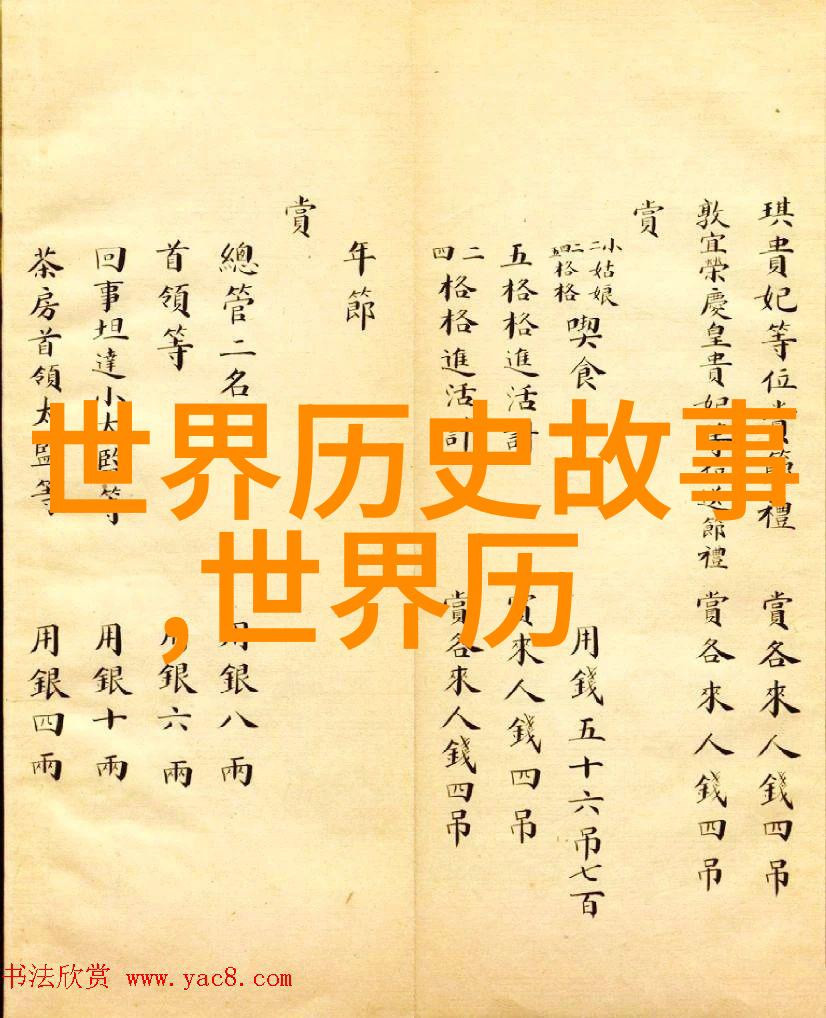 琪貴妃等位賞節禮 賞各來人錢四吊
敦宜榮慶皇貴妃等位送節禮 賞各來人錢四吊
賞
小姑娘
二
二格格
四格格
喫食 用錢五十六吊七百
五格格進活計 賞來人錢四吊
二四格格進活計 賞各來人錢四吊
年節
賞
總管二名 用銀八兩
首領等 用銀六兩
回事坦達小太監等 用銀十兩
茶房首領太監等 用銀四兩
世界历史故事
,世界历
书法欣赏 www.yac8.com